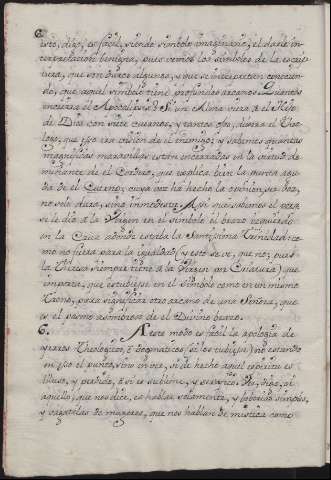 esto, digo, es facil, siendo simbolo imaginario, el darle in-
terpretacion benigna, pues vemos los simbolos de la escri-
tura, que son duros algunos, y que se interpretan conocien-
do, que aquel simbolo tiene profundos arcanos. Quantos
encierra el Apocalipsis? Si un Alma viera al Hijo
de Dios con siete cuernos, y tantos ojos, dixera el Theo-
logo, que esso era vision de el enemigo; y sabemos quantas
magnificas maravillas estan encerradas en la
de el Cordero, que replica bien la punta agu-
da de el Cuerno; cuya voz ha hecho la opinion, sea
no solo dura, sino immodesta. Assi que si bemos el
se le dio a la Virgen en el simbolo el brazo izquierdo
en la Cruz adonde estaba la Santissima Trinidad: co-
mo no fuera para la igualdad (y esto se ve, que no; pues
la Theresa siempre tiene a la Virgen por Criatura) que
importa, que estubiesse en el simbolo como en un mismo
Trono, para significar otro arcano de una Señora, que
es el pasmo asombroso de el Divino brazo.
6. A este modo es facil la apologia de
yerros Theologicos, o Dogmaticos (si los tubiesse) no estando
en esso el punto, sino en ver, si de hecho aquel espiritu es
illuso, y perdido, o si es sublime, y serafico. Por, digo, al
aquello, que nos dice, es hablar solamente, y boberias simples,
y bagatelas de mugeres, que nos hablan de mistica como